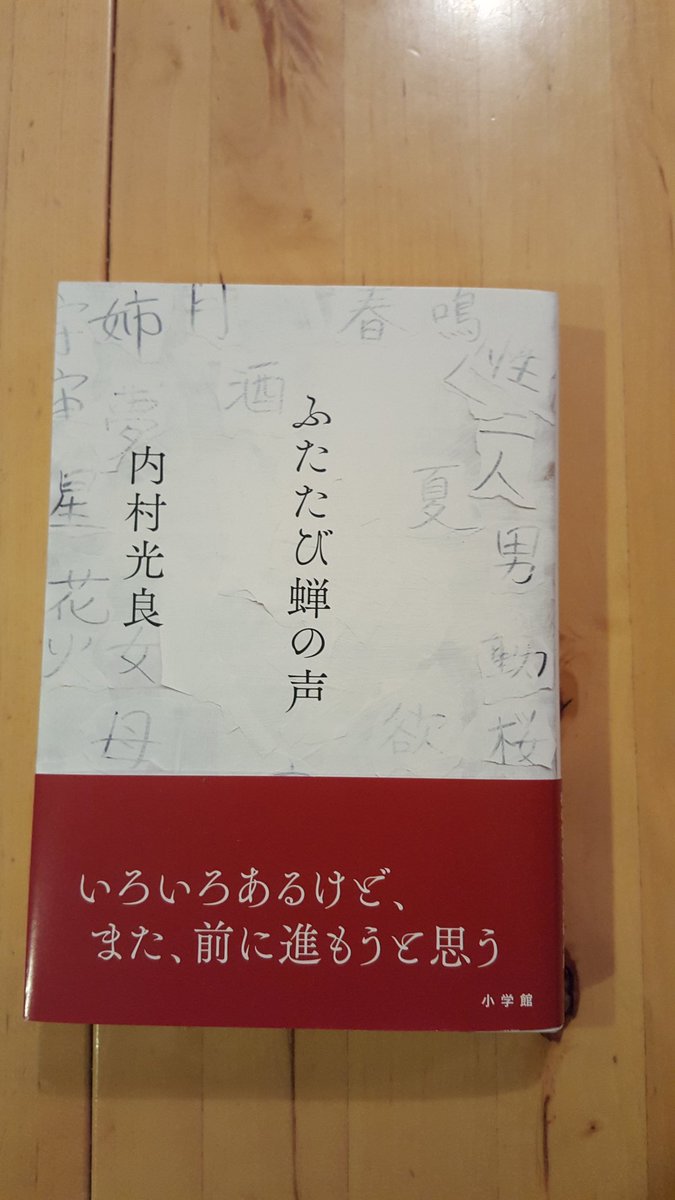 ふたたび蝉の声
内村光良
春
鳴
性
二人
男
動
桜
夏
欲
月
酒
姉
夢
女
母
宇宙
星
花火
いろいろあるけど、
また、前に進もうと思う
小学館